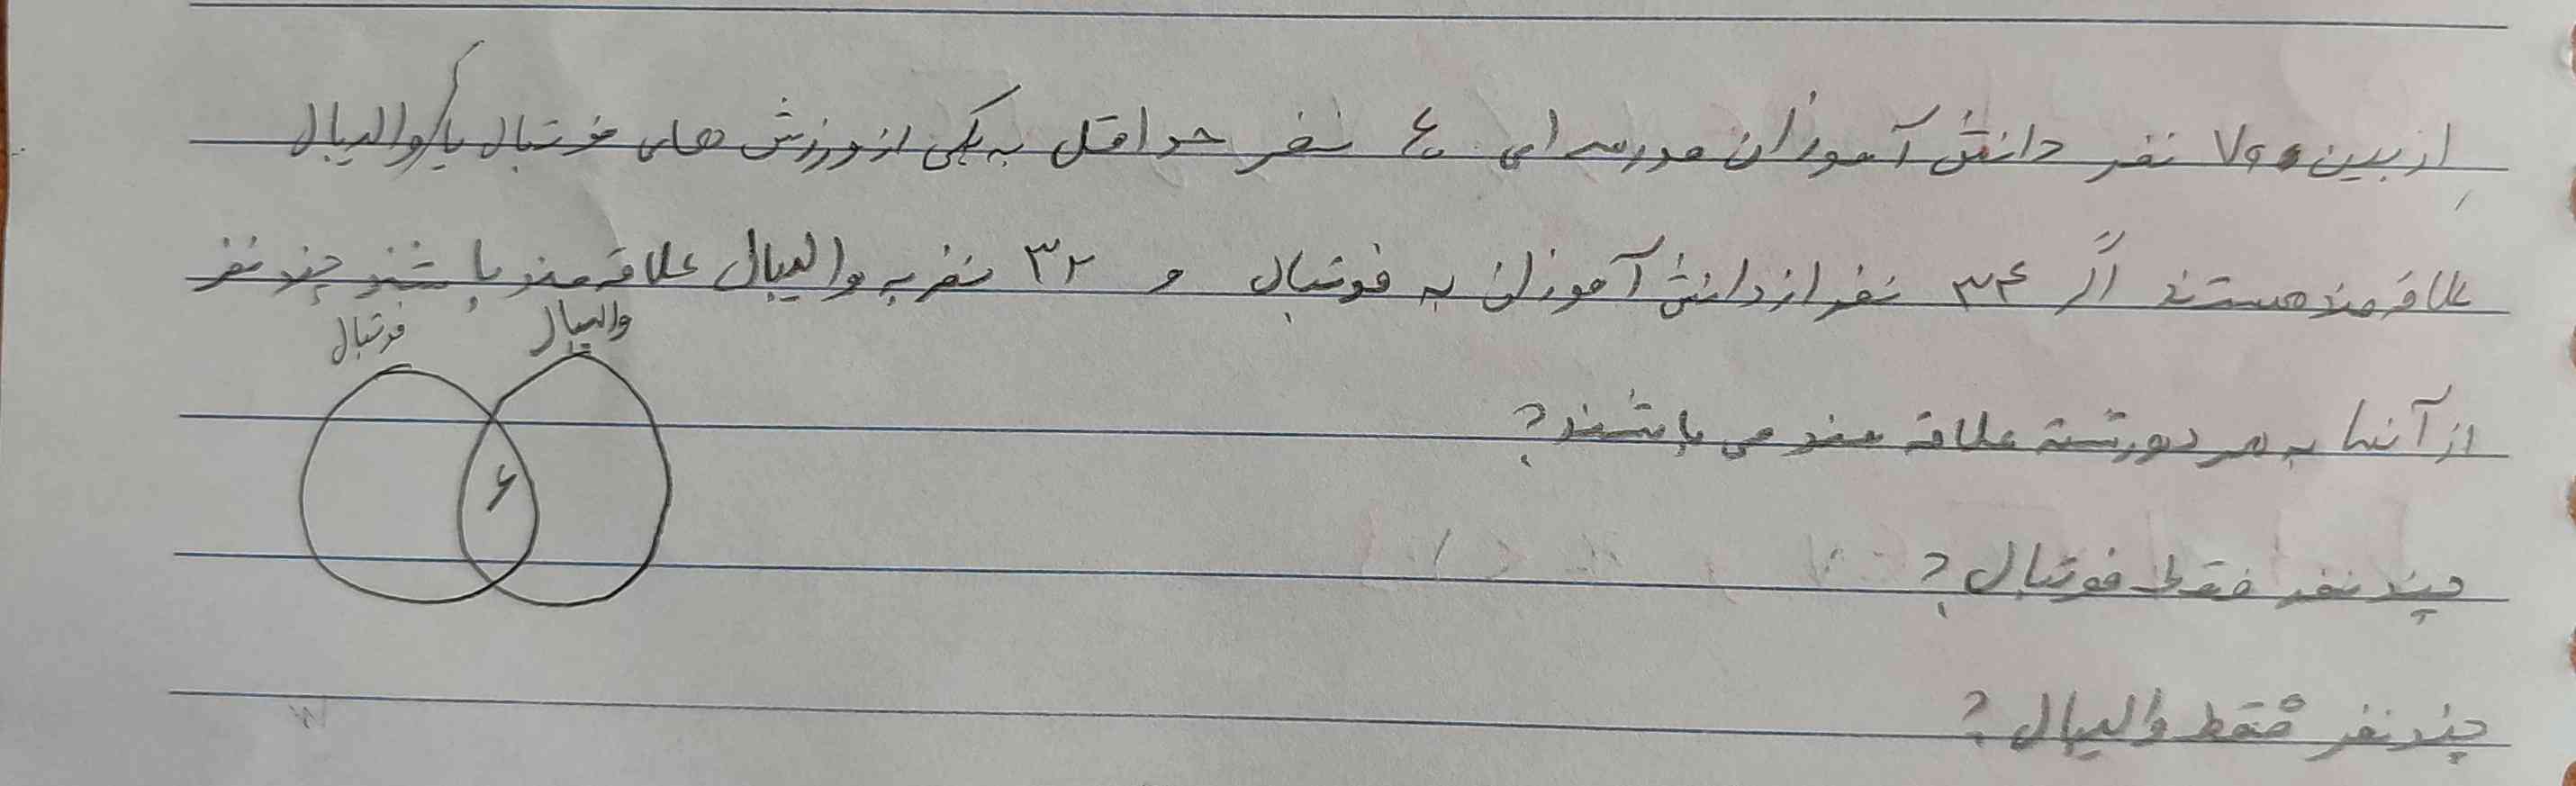 از بین ۷۶۰ نفر دانش آموزان مدرسه ای ۶۰ نفر حداقل به یکی از ورزش های فوتبال یا والیبال
علاقه مند هستند اگر ۳۴ نفر از دانش آموزان به فوتبال و ۳۲ نفر به والیبال علاقه مند باشند چند نفر
والیبال
فوتبال
از آنها به هر دو رشته علاقه مند می باشند؟
۶
چند نفر فقط فوتبال؟
چند نفر فقط والیبال؟